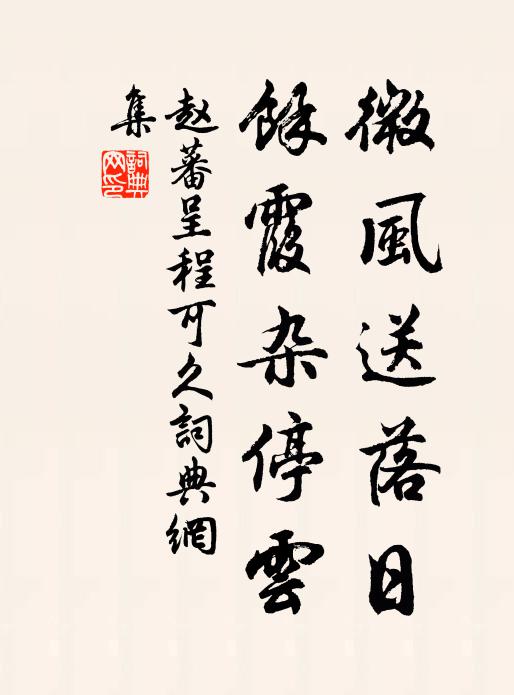 微風送落日
餘霞杂停雲
赵蕃呈程可久詞典網
集
詞典
网印